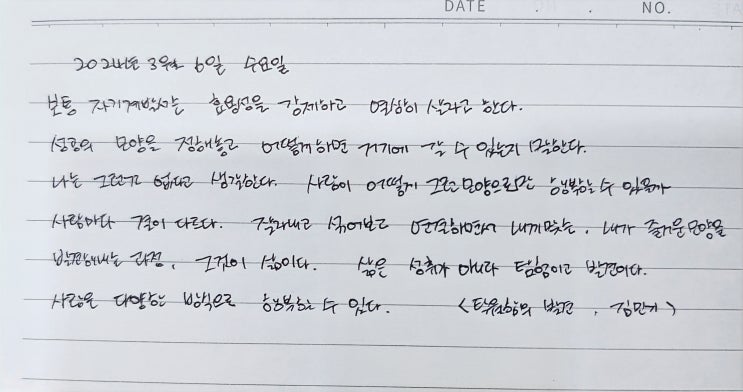 DATE . . NO.
2024년 3월 6일 수요일
보통 자기계발서는 효율성을 강제하고 열심히 살라고 한다.
성공의 모양을 정해놓고 어떻게 하면 거기에 갈 수 있는지 말한다.
나는 그런거 없다고 생각한다. 사람이 어떻게 그런 모양으로만 행복할 수 있을까
사람마다 결이 다르다. 잘라내고 섞어보고 연결하면서 내게 맞는, 내가 즐거운 모양을
발견해내는 과정, 그것이 삶이다. 삶은 성취가 아니라 탐험이고 발견이다.
사람은 다양한 방식으로 행복할 수 있다. < 의 발견, 김민기 >